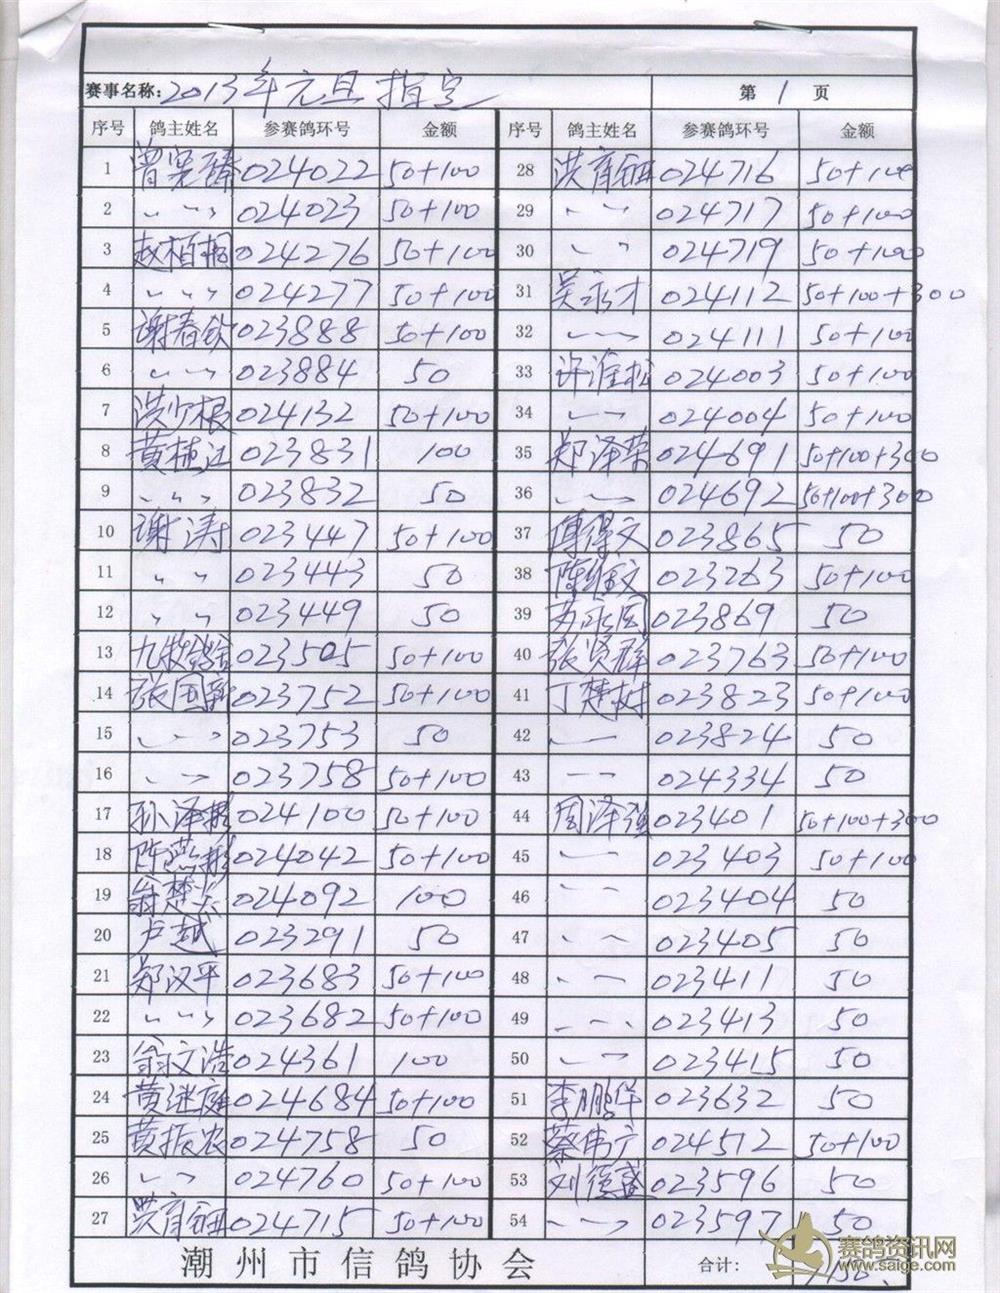 赛事名称: 2013年元旦指定 第 1 页
序号 鸽主姓名 参赛鸽环号 金额 序号 鸽主姓名 参赛鸽环号 金额
1 024022 50+100 28 洪育 024716 50+100
2 〃 〃 〃 024023 50+100 29 〃 〃 024717 50+100
3 赵栢桐 024276 50+100 30 〃 〃 024719 50+100
4 〃 〃 〃 024277 50+100 31 吴永才 024112 50+100+300
5 谢春钦 023888 50+100 32 〃 〃 024111 50+100
6 〃 〃 023884 50 33 许淮松 024003 50+100
7 洪少根 024132 50+100 34 〃 〃 024004 50+100
8 黄植江 023831 100 35 郑泽荣 024691 50+100+300
9 〃 〃 〃 023832 50 36 〃 〃 024692 50+100+300
10 谢涛 023447 50+100 37 陈得文 023865 50
11 〃 〃 023443 50 38 陈继文 023263 50+100
12 〃 〃 023449 50 39 苏永国 023869 50
13 九枝鸽舍 023505 50+100 40 张贤群 023763 50+100
14 张国新 023752 50+100 41 丁楚树 023823 50+100
15 〃 〃 023753 50 42 〃 〃 023824 50
16 〃 〃 023758 50+100 43 〃 〃 024334 50
17 孙泽 024100 50+100 44 周泽强 023401 50+100+300
18 陈 024042 50+100 45 〃 〃 023403 50+100
19 翁楚 024092 100 46 〃 〃 023404 50
20 卢越 023291 50 47 〃 〃 023405 50
21 郑汉平 023683 50+100 48 〃 〃 023411 50
22 〃 〃 〃 023682 50+100 49 〃 〃 023413 50
23 翁文浩 024361 100 50 〃 〃 023415 50
24 黄继庭 024684 50+100 51 李鹏华 023632 50
25 黄振农 024758 50 52 蔡伟广 024512 50+100
26 〃 〃 024760 50+100 53 刘德盛 023596 50
27 洪育 024715 50+100 54 〃 〃 023597 50
潮州市信鸽协会 合计:
赛鸽资讯网
www.saige.com